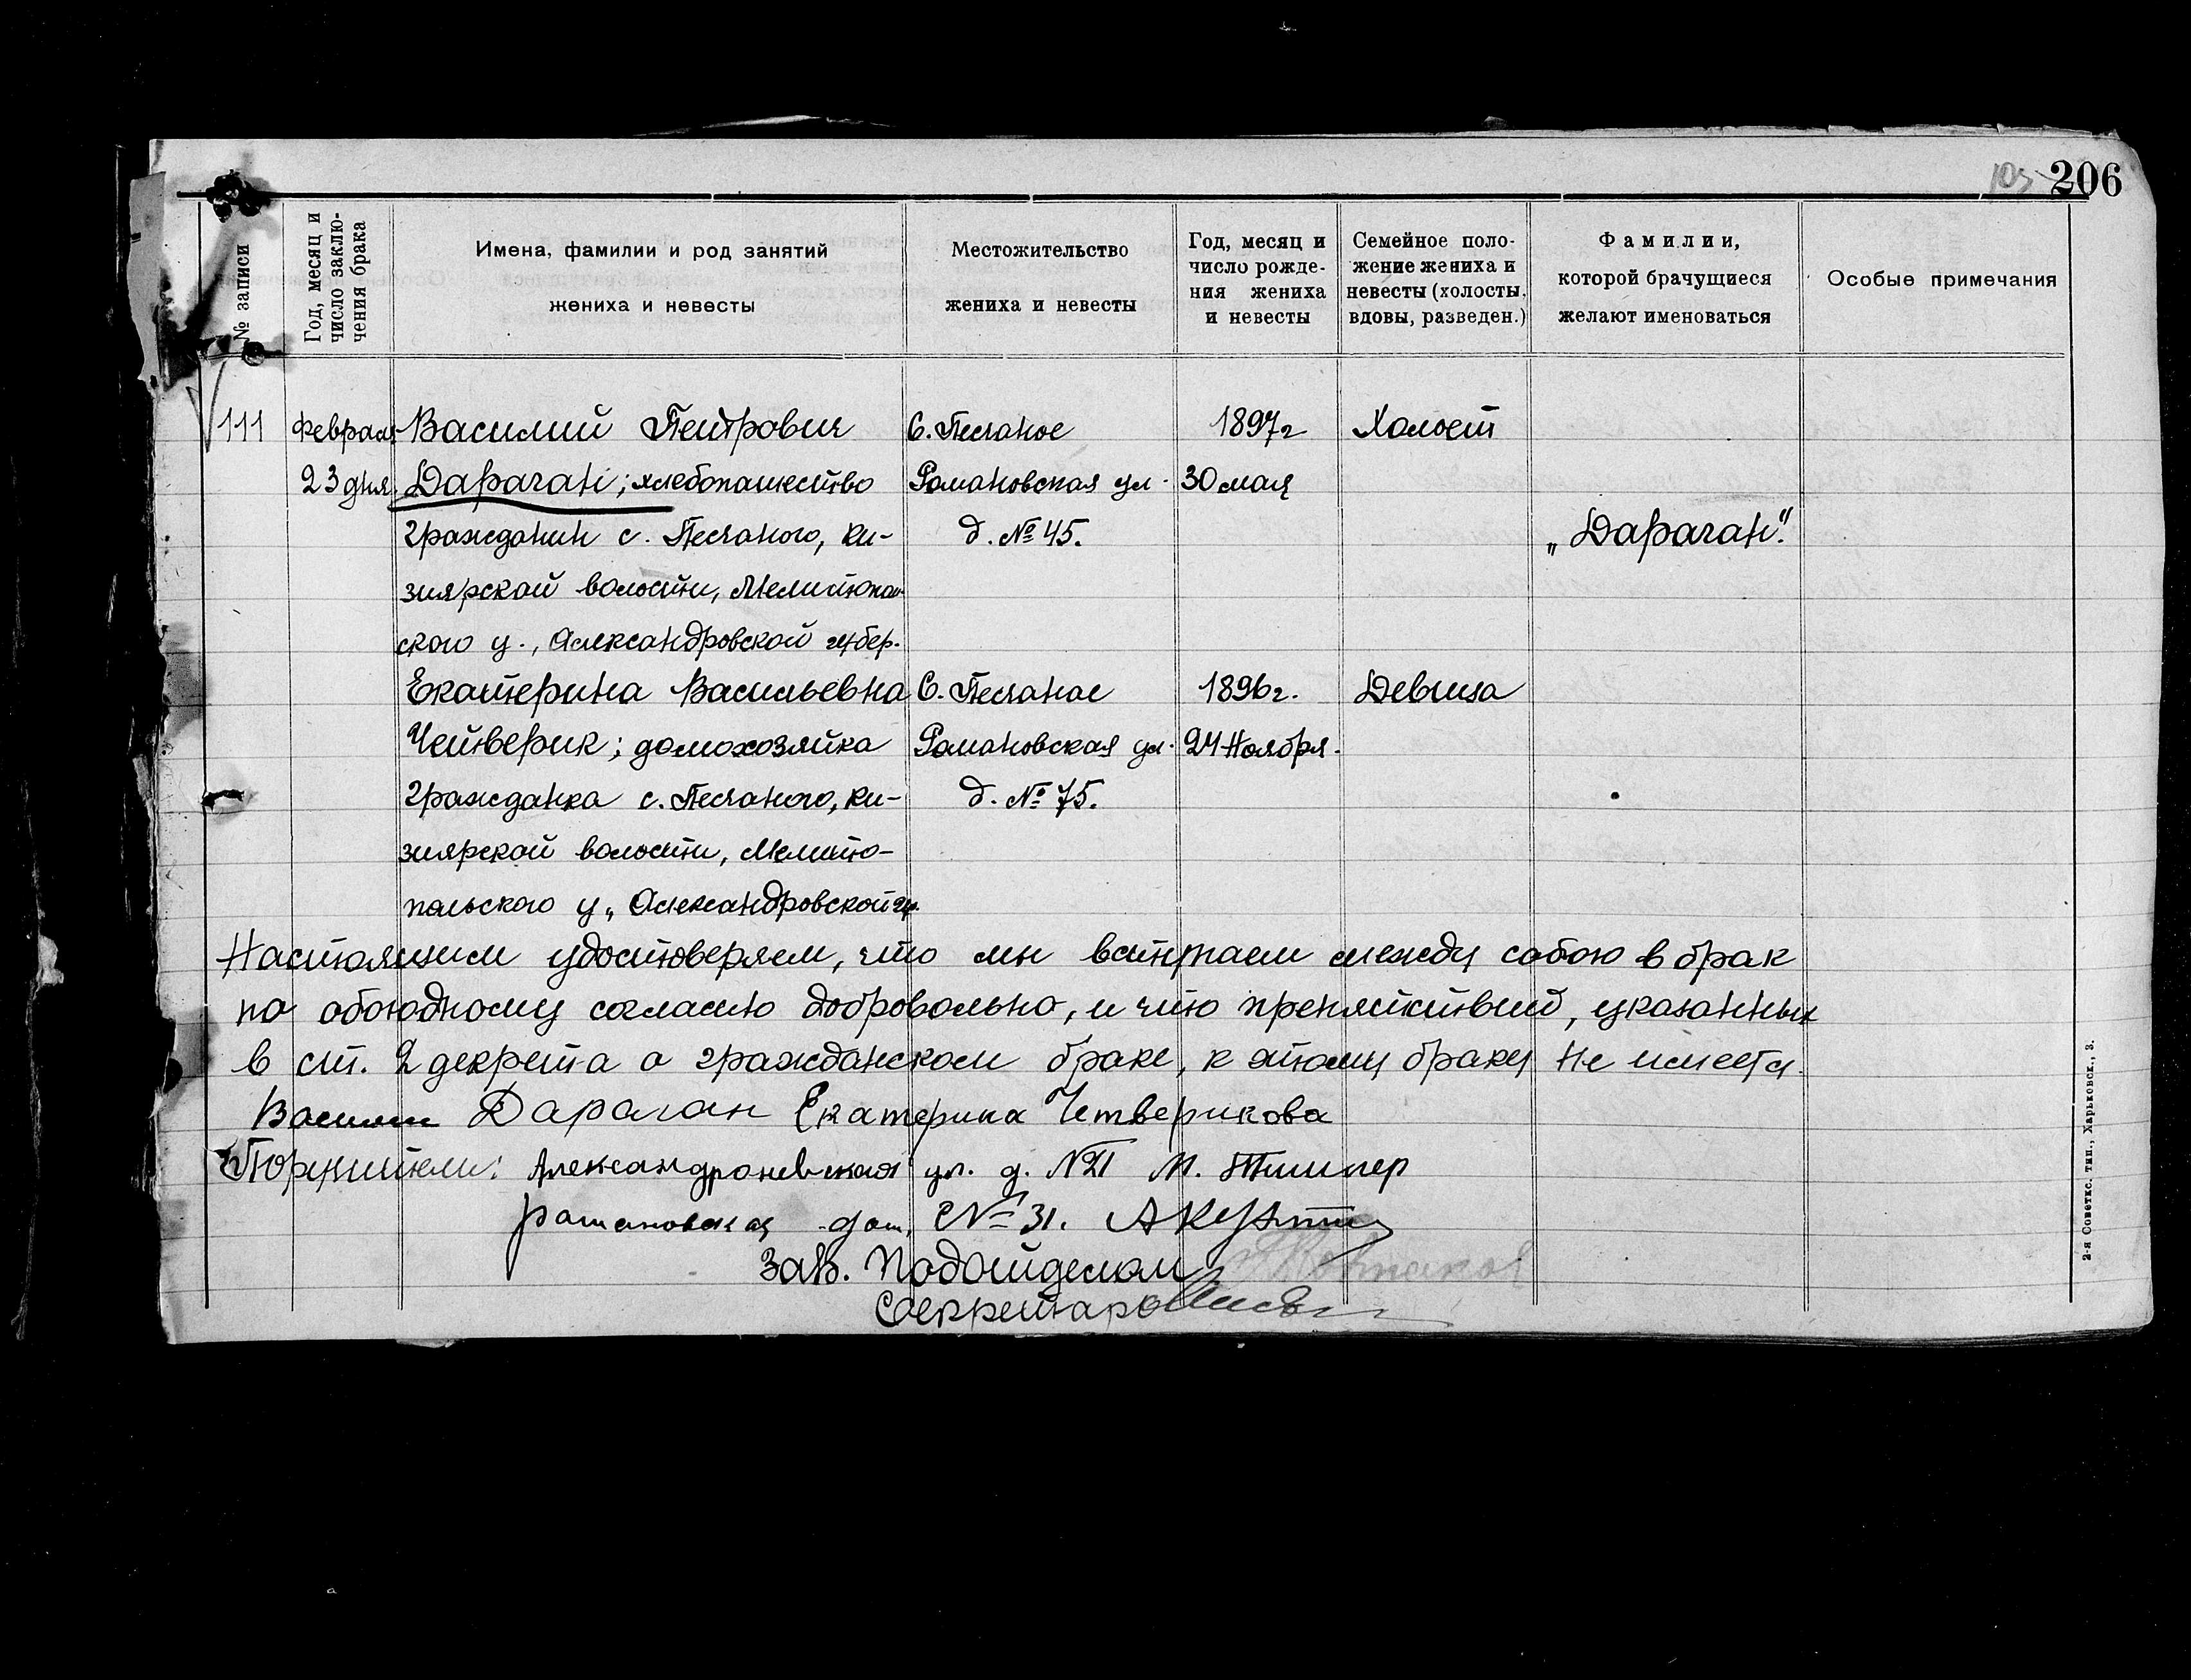 206
№ записи
Год, месяц и
число заклю-
чения брака
Имена, фамилии и род занятий
жениха и невесты
Местожительство
жениха и невесты
Год, месяц и
число рожде-
ния жениха
и невесты
Семейное поло-
жение жениха и
невесты (холосты,
вдовы, разведен.)
Фамилии,
которой брачущиеся
желают именоваться
Особые примечания
111 февраля Василий Петрович С. Песчаное 1897г Холост
23 дня Дараган; хлебопашество Романовская ул. 30 мая
гражданин с. Песчаного, Ки- д. № 45. „Дараган".
зиярской волости, Мелитополь-
ского у., Александровской губер.
Екатерина Васильевна С. Песчаное 1896г. Девица
Четверик; домохозяйка Романовская ул. 24 Ноября.
гражданка с. Песчаного, Ки- д. № 75.
зиярской волости, Мелито-
польского у., Александровской гу.
Настоящим удостоверяем, что мы вступаем между собою в брак
по обоюдному согласию добровольно, и что препятствий, указанных
в ст. 2 декрета о гражданском браке, к этому браку не имеется.
Василий Дараган Екатерина Четверикова
Поручители: Александроневская ул. д. М.
Романовская дом, № 31.
Зав. Подотделом
Секретарь
2-я Советск. тип., Харьковск., 3.